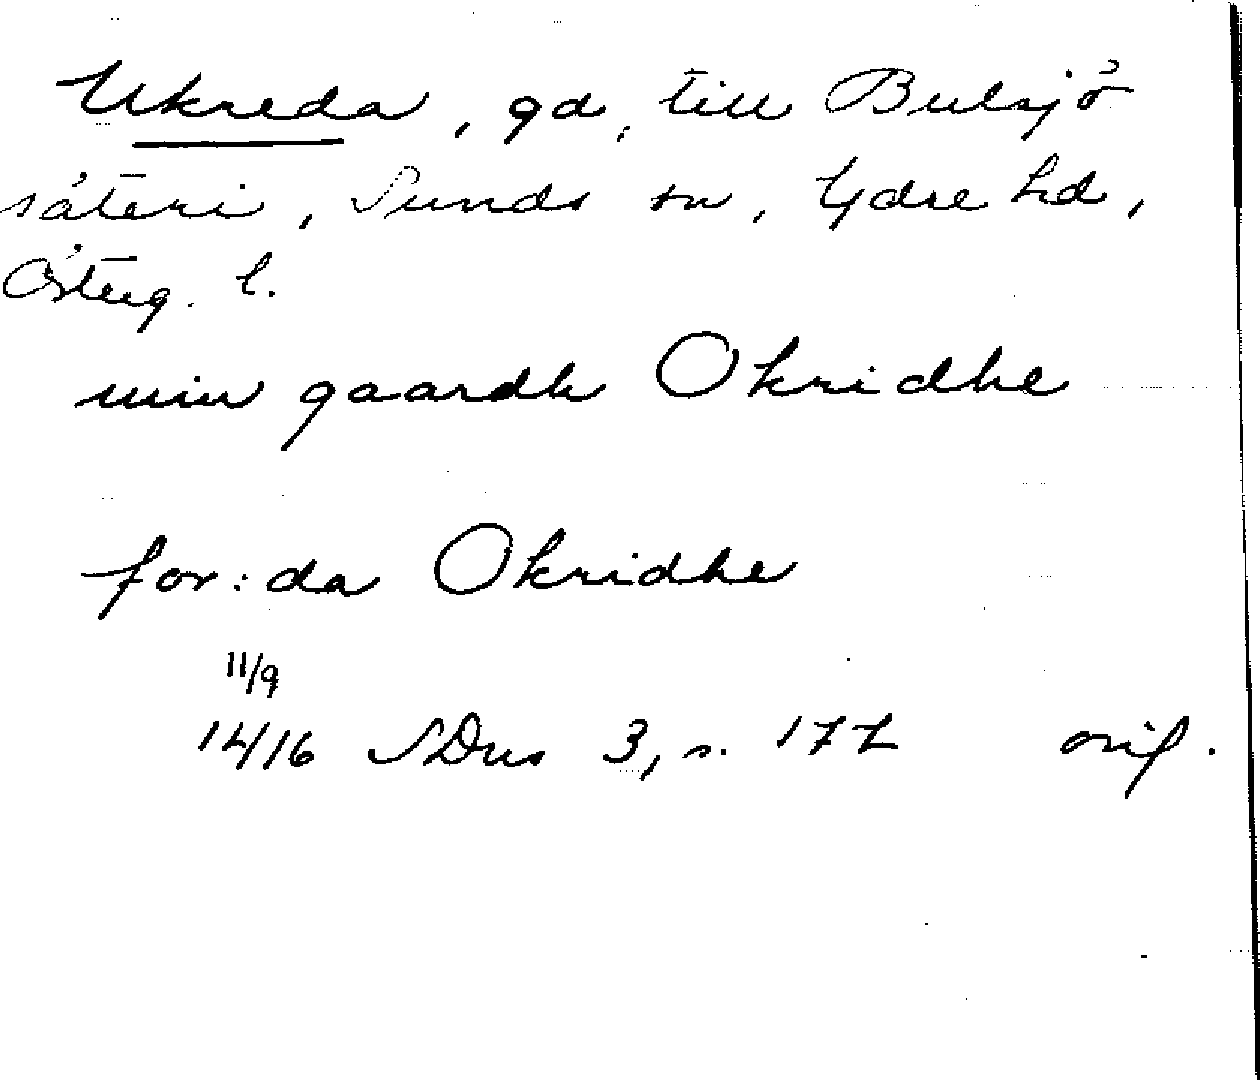 Ukreda, gd, till Bulsjö
säteri, Sunds sn, Ydre hd,
Österg. l.
min gaardh Okridhe
for:da Okridhe
11/9
1416 SDns 3, s. 172 orig.